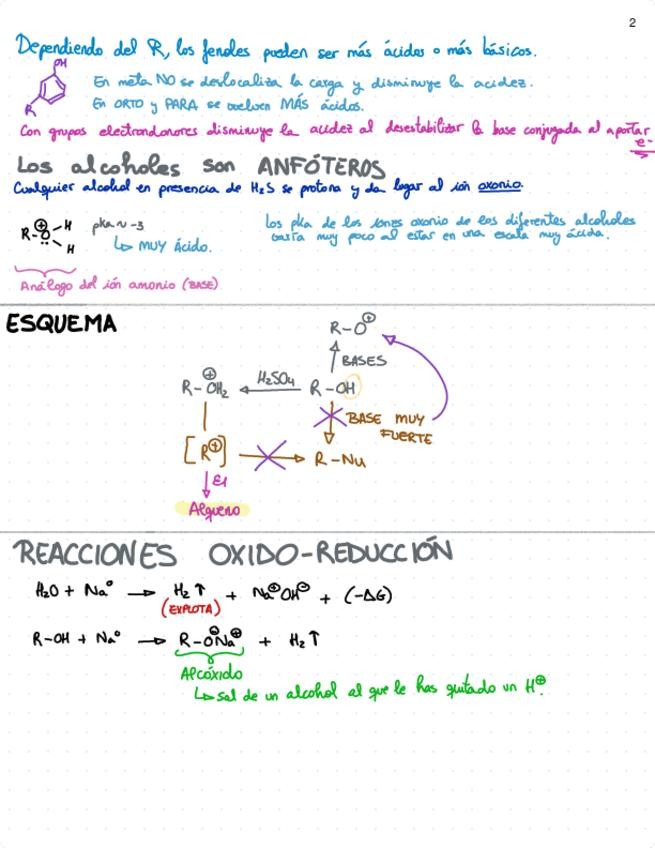 2
Dependiendo del R, los fenoles pueden ser más ácidos o más básicos.
OH
R
En meta NO se deslocaliza la carga y disminuye la acidez.
En ORTO y PARA se vuelven MÁS ácidos.
Con grupos electrondonores disminuye la acidez al desestabilizar la base conjugada al aportar e-
Los alcoholes son ANFÓTEROS
Cualquier alcohol en presencia de H2S se protona y da lugar al ión oxonio.
R-O⊕-H
H
pka ~ -3
↳ MUY ÁCIDO.
Los pka de los iones oxonio de los diferentes alcoholes
varía muy poco al estar en una escala muy ácida.
Análogo del ión amonio (BASE)
ESQUEMA
R-O⊕
BASES
R-OH2⊕ ← H2SO4 R-OH
BASE MUY
FUERTE
[R⊕] → R-Nu
E1
Alqueno
REACCIONES OXIDO-REDUCCIÓN
H2O + Na° → H2↑ + Na⊕OH⊖ + (-ΔG)
(EXPLOTA)
R-OH + Na° → R-O⊖Na⊕ + H2↑
Alcóxido
↳ sal de un alcohol al que le has quitado un H⊕.